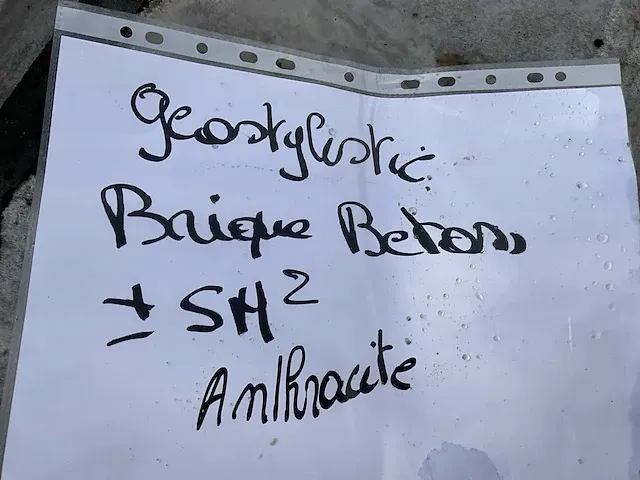 Geostylistic
Brique Beton
± 5M²
Anthracite